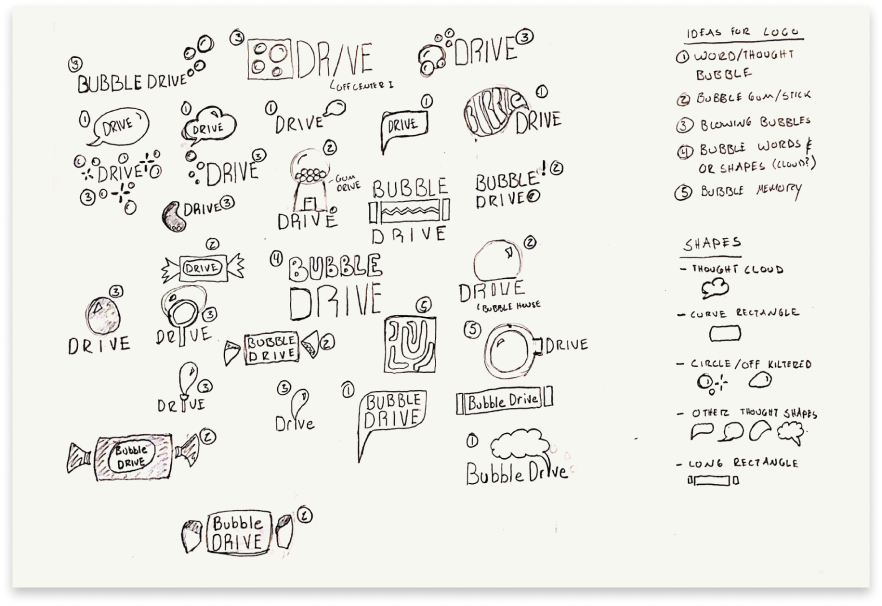 ③
BUBBLE DRIVE
③
DRIVE
↳OFF CENTER I
DRIVE ③
①
DRIVE
①
DRIVE
①
DRIVE
①
DRIVE
①
DRIVE
DRIVE
③
DRIVE ③
②
GUM
DRIVE
DRIVE
BUBBLE
DRIVE
BUBBLE! ②
DRIVE
DRIVE ③
②
DRIVE
④ BUBBLE
DRIVE
②
DRIVE
BUBBLE HOUSE
③
DRIVE
③
DRIVE
BUBBLE
DRIVE
②
⑤
⑤
DRIVE
③
DRIVE
③
Drive
①
BUBBLE
DRIVE
Bubble Drive
②
Bubble
DRIVE
①
Bubble Drive
②
Bubble
DRIVE
IDEAS FOR LOGO
① WORD/THOUGHT
BUBBLE
② BUBBLE GUM/STICK
③ BLOWING BUBBLES
④ BUBBLE WORDS &
OR SHAPES (CLOUD?)
⑤ BUBBLE MEMORY
SHAPES
- THOUGHT CLOUD
- CURVE RECTANGLE
- CIRCLE/OFF KILTERED
- OTHER THOUGHT SHAPES
- LONG RECTANGLE